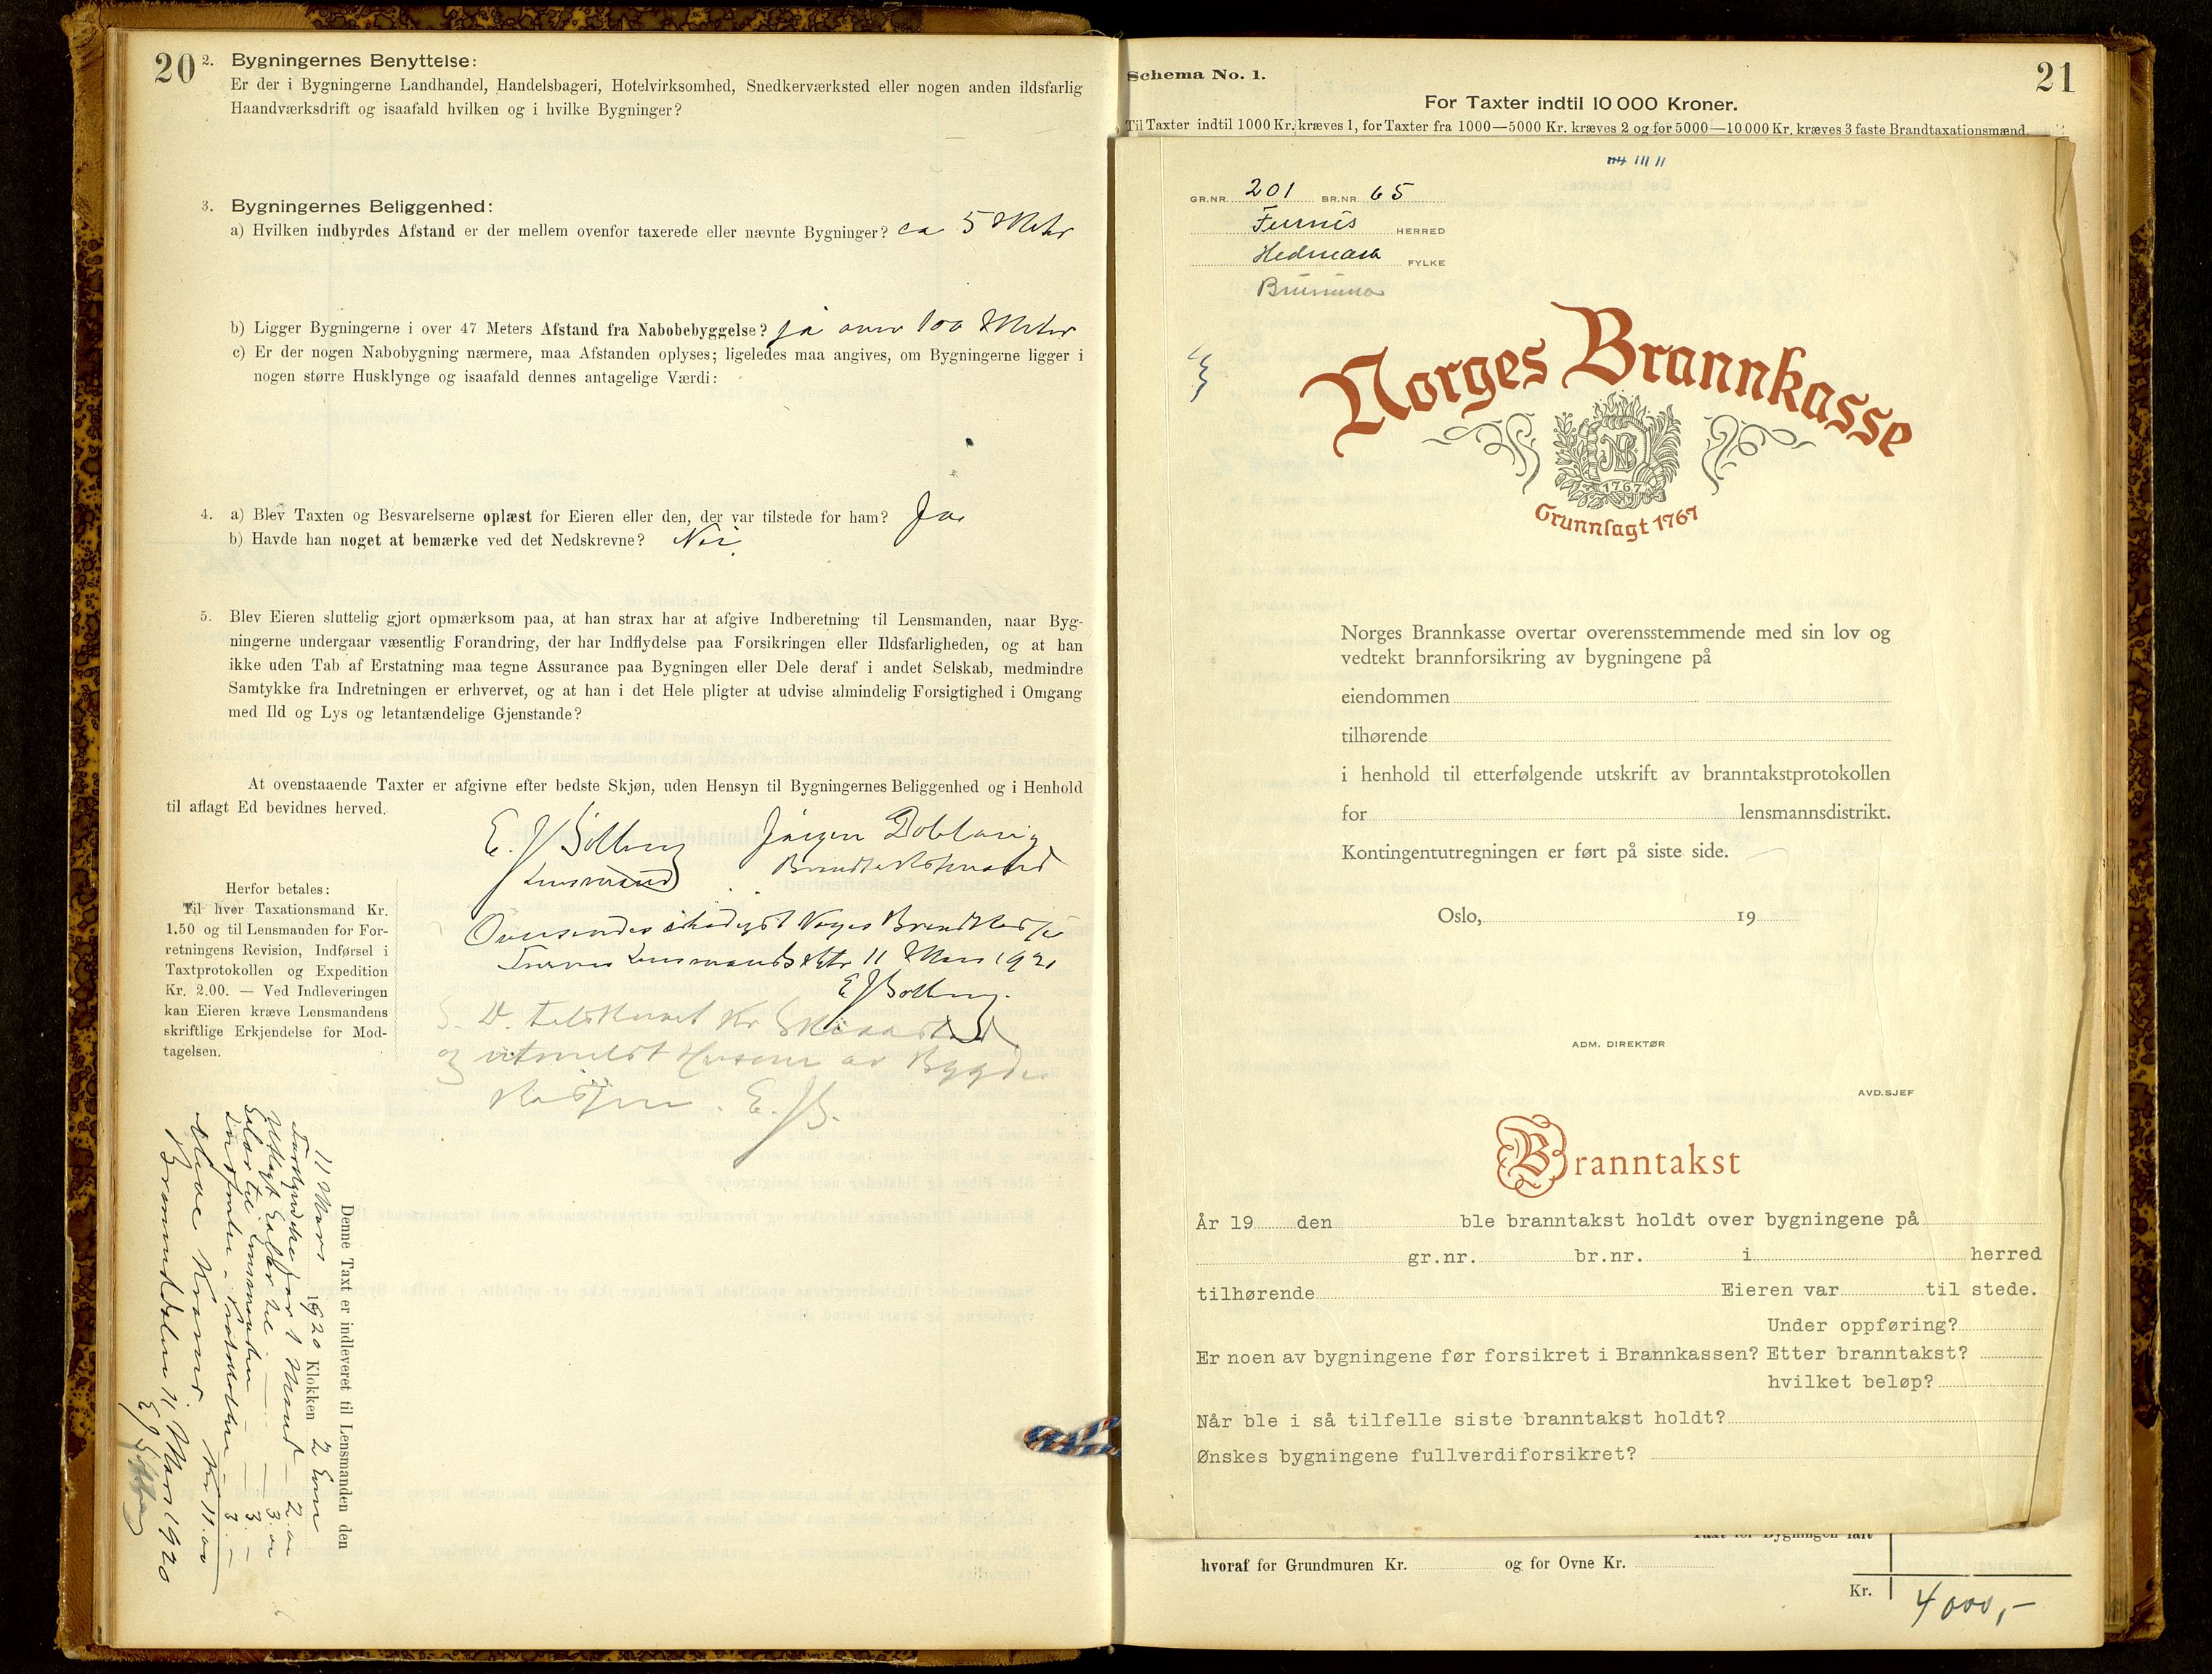 20
2. Bygningernes Benyttelse:
Er der i Bygningerne Landhandel, Handelsbageri, Hotelvirksomhed, Snedkerværksted eller nogen anden ildsfarlig
Haandværksdrift og isaafald hvilken og i hvilke Bygninger?
3. Bygningernes Beliggenhed:
a) Hvilken indbyrdes Afstand er der mellem ovenfor taxerede eller nævnte Bygninger? ca 5 Meter
b) Ligger Bygningerne i over 47 Meters Afstand fra Nabobebyggelse? ja over 100 Meter
c) Er der nogen Nabobygning nærmere, maa Afstanden oplyses; ligeledes maa angives, om Bygningerne ligger i
nogen større Husklynge og isaafald dennes antagelige Værdi:
4. a) Blev Taxten og Besvarelserne oplæst for Eieren eller den, der var tilstede for ham? Ja
b) Havde han noget at bemærke ved det Nedskrevne? Nei.
5. Blev Eieren sluttelig gjort opmærksom paa, at han strax har at afgive Indberetning til Lensmanden, naar Byg-
ningerne undergaar væsentlig Forandring, der har Indflydelse paa Forsikringen eller Ildsfarligheden, og at han
ikke uden Tab af Erstatning maa tegne Assurance paa Bygningen eller Dele deraf i andet Selskab, medmindre
Samtykke fra Indretningen er erhvervet, og at han i det Hele pligter at udvise almindelig Forsigtighed i Omgang
med Ild og Lys og letantændelige Gjenstande?
At ovenstaaende Taxter er afgivne efter bedste Skjøn, uden Hensyn til Bygningernes Beliggenhed og i Henhold
til aflagt Ed bevidnes herved.
E. J. Jørgen
Lensmand
Herfor betales:
Til hver Taxationsmand Kr.
1.50 og til Lensmanden for For-
retningens Revision, Indførsel i
Taxtprotokollen og Expedition
Kr. 2.00. — Ved Indleveringen
kan Eieren kræve Lensmandens
skriftlige Erkjendelse for Mod-
tagelsen.
Oversendes Norges
Furnes 11 Mars
E J
og utmeldt Husene av Bygde
kassen. E. J. S.
Denne Taxt er indleveret til Lensmanden den
11 Mars 1920 Klokken 2 Em
for 1 Mand - 2.00
Utlagt til - 3.00
til Lensmanden - 3.-
- 3.-
Kroner. Kr 11.00
11 Mars 1920
E J
Schema No. 1.
21
For Taxter indtil 10 000 Kroner.
Til Taxter indtil 1000 Kr. kræves 1, for Taxter fra 1000—5000 Kr. kræves 2 og for 5000—10 000 Kr. kræves 3 faste Brandtaxationsmænd.
GR.NR. 201 BR.NR. 65
Furnes HERRED
Hedmark FYLKE
Norges Brannkasse
NB
1767
Grunnlagt 1767
Norges Brannkasse overtar overensstemmende med sin lov og
vedtekt brannforsikring av bygningene på
eiendommen
tilhørende
i henhold til etterfølgende utskrift av branntakstprotokollen
for lensmannsdistrikt.
Kontingentutregningen er ført på siste side.
Oslo, 19
ADM. DIREKTØR
AVD.SJEF
Branntakst
År 19 den ble branntakst holdt over bygningene på
gr.nr. br.nr. i herred
tilhørende Eieren var til stede.
Under oppføring?
Er noen av bygningene før forsikret i Brannkassen? Etter branntakst?
hvilket beløp?
Når ble i så tilfelle siste branntakst holdt?
Ønskes bygningene fullverdiforsikret?
hvoraf for Grundmuren Kr. og for Ovne Kr.
Kr. 4000,-